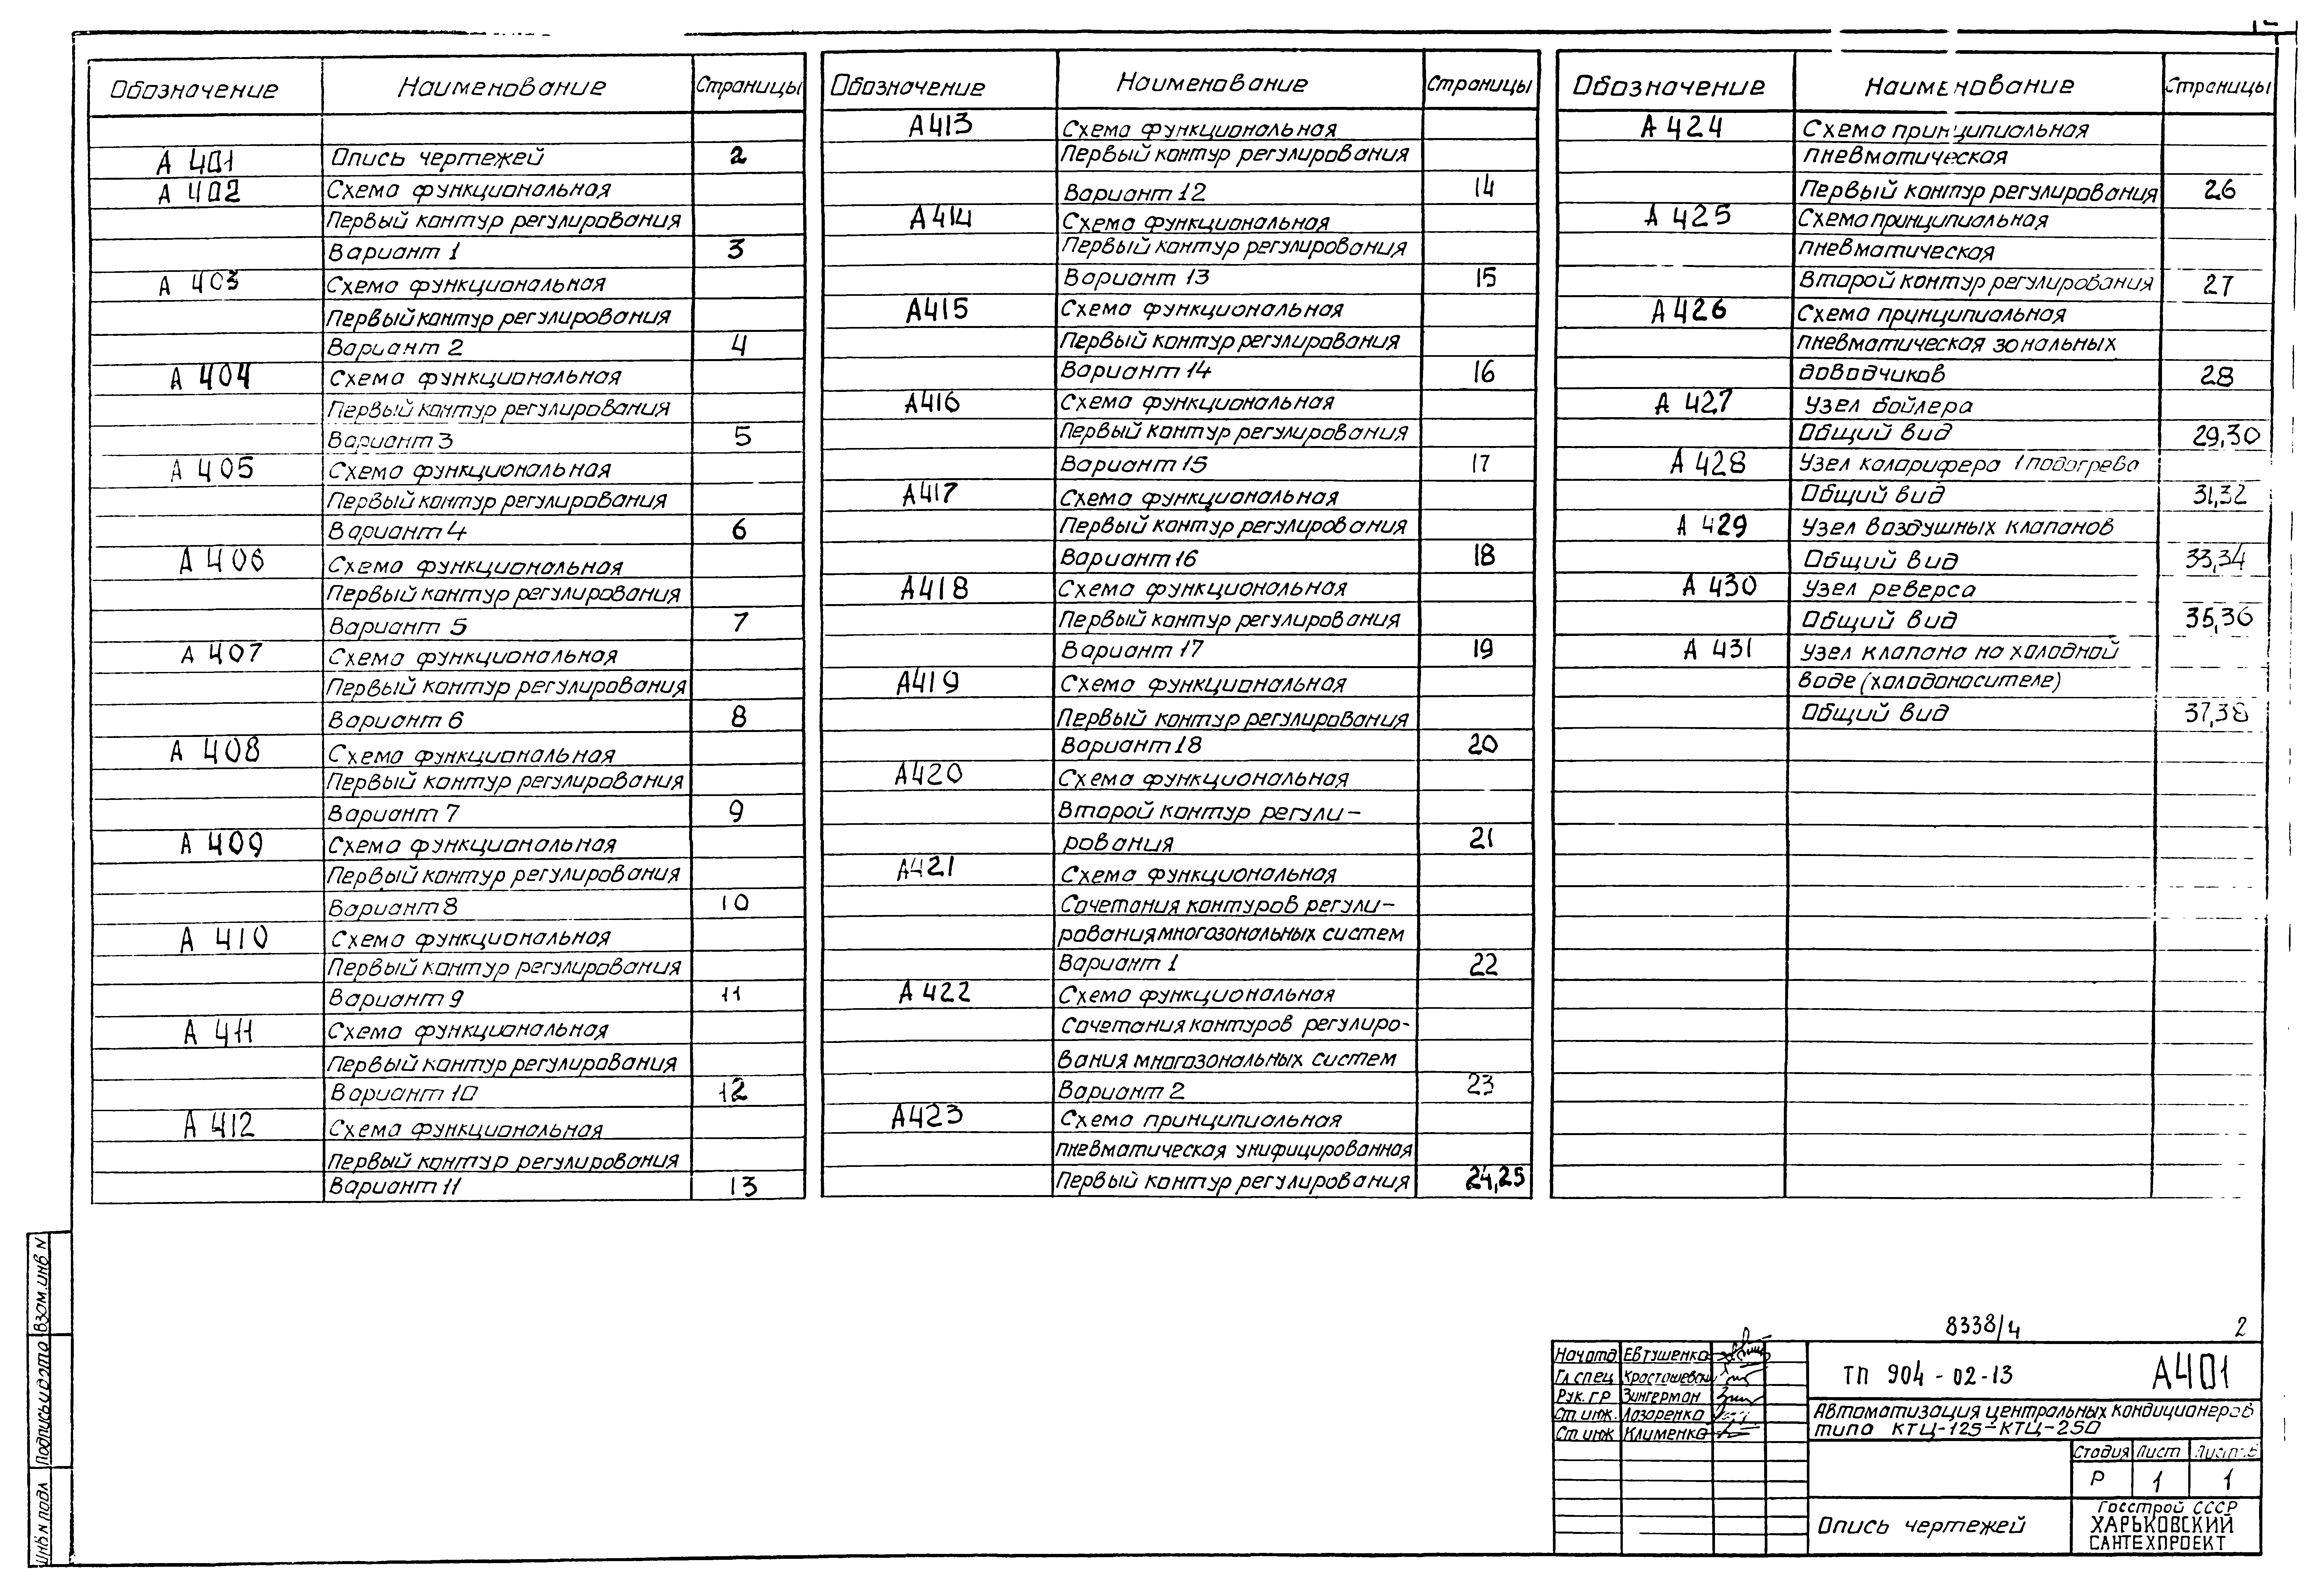 Обозначение Наименование Страницы
А 401 Опись чертежей 2
А 402 Схема функциональная
Первый контур регулирования
Вариант 1 3
А 403 Схема функциональная
Первый контур регулирования
Вариант 2 4
А 404 Схема функциональная
Первый контур регулирования
Вариант 3 5
А 405 Схема функциональная
Первый контур регулирования
Вариант 4 6
А 406 Схема функциональная
Первый контур регулирования
Вариант 5 7
А 407 Схема функциональная
Первый контур регулирования
Вариант 6 8
А 408 Схема функциональная
Первый контур регулирования
Вариант 7 9
А 409 Схема функциональная
Первый контур регулирования
Вариант 8 10
А 410 Схема функциональная
Первый контур регулирования
Вариант 9 11
А 411 Схема функциональная
Первый контур регулирования
Вариант 10 12
А 412 Схема функциональная
Первый контур регулирования
Вариант 11 13
Обозначение Наименование Страницы
А413 Схема функциональная
Первый контур регулирования
Вариант 12 14
А414 Схема функциональная
Первый контур регулирования
Вариант 13 15
А415 Схема функциональная
Первый контур регулирования
Вариант 14 16
А416 Схема функциональная
Первый контур регулирования
Вариант 15 17
А417 Схема функциональная
Первый контур регулирования
Вариант 16 18
А418 Схема функциональная
Первый контур регулирования
Вариант 17 19
А419 Схема функциональная
Первый контур регулирования
Вариант 18 20
А420 Схема функциональная
Второй контур регули-
рования 21
А421 Схема функциональная
Сочетания контуров регули-
рования многозональных систем
Вариант 1 22
А 422 Схема функциональная
Сочетания контуров регулиро-
вания многозональных систем
Вариант 2 23
А423 Схема принципиальная
пневматическая унифицированная
Первый контур регулирования 24,25
Обозначение Наименование Страницы
А 424 Схема принципиальная
пневматическая
Первый контур регулирования 26
А 425 Схема принципиальная
пневматическая
Второй контур регулирования 27
А 426 Схема принципиальная
пневматическая зональных
доводчиков 28
А 427 Узел бойлера
Общий вид 29,30
А 428 Узел калорифера 1 подогрева
Общий вид 31,32
А 429 Узел воздушных клапанов
Общий вид 33,34
А 430 Узел реверса
Общий вид 35,36
А 431 Узел клапана на холодной
воде (холодоносителе)
Общий вид 37,38
Взам. инв N
Подпись и дата
Инв N подл
8338/4 2
Нач отд Евтушенко
Гл спец
Рук. гр Зингерман
Ст. инж. Лазаренко
Ст инж Клименко
ТП 904-02-13 А401
Автоматизация центральных кондиционеров
типа КТЦ-125÷КТЦ-250
Стадия Лист Листов
Р 1 1
Опись чертежей
Госстрой СССР
ХАРЬКОВСКИЙ
САНТЕХПРОЕКТ